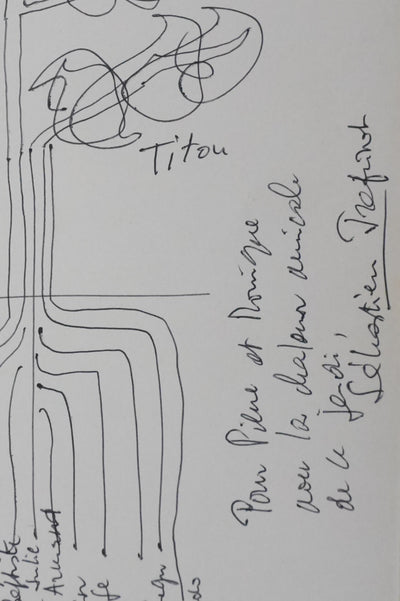 Titou
Pour Pierre et Monique
avec la chaleur amicale
de ce jeudi
Sébastien
Julie
Armand